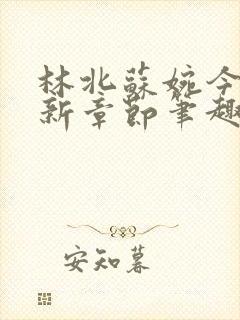 林北蘇婉今
新章節筆趣
安知暮